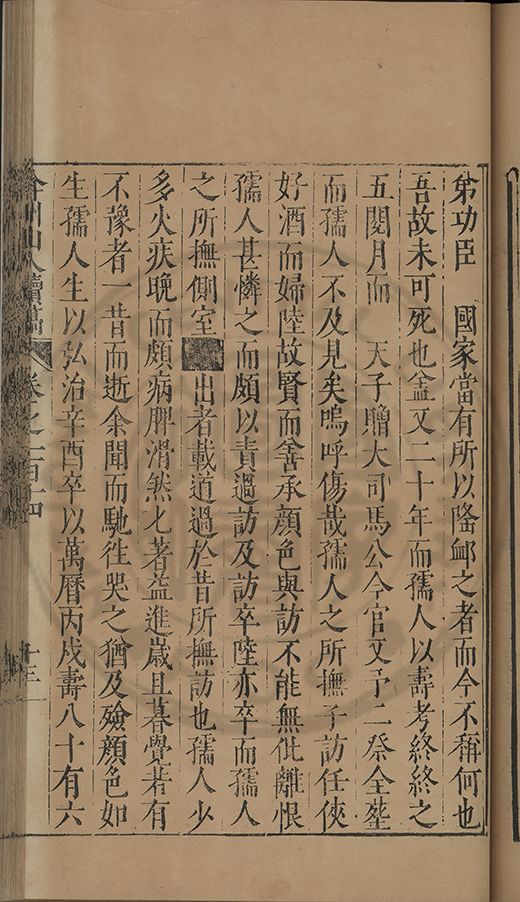 第功臣　國家當有所以隆䘏之者而今不稱何也
吾故未可死也盖又二十年而孺人以壽考終終之
五閱月而　天子贈大司馬公今官又予二祭全塟
而孺人不及見矣嗚呼傷哉孺人之所撫子訪任俠
好酒而婦陸故賢而善承顔色與訪不能無仳離恨
孺人甚憐之而頗以責過訪及訪卒陸亦卒而孺人
之所撫側室出者載道過於昔所撫訪也孺人少
多火疾晚而頗病脾滑然匕著益進歲且暮覺若有
不豫者一昔而逝余聞而馳往哭之猶及殮顔色如
生孺人生以弘治辛酉卒以萬曆丙戌壽八十有六
弇州山人續稿　卷之一百十四　十三